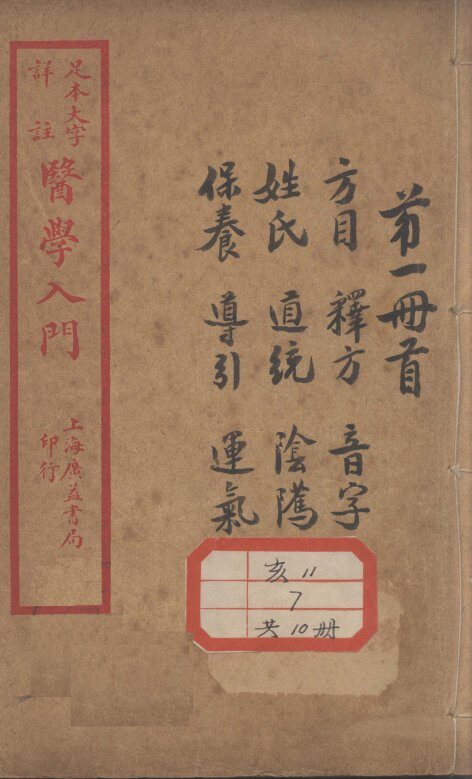 第一冊首
方目 釋方 音字
姓氏 道統 陰隲
保養 導引 運氣
足本大字
詳註
醫學入門
上海廣益書局
印行
亥 11
7
共 10 册